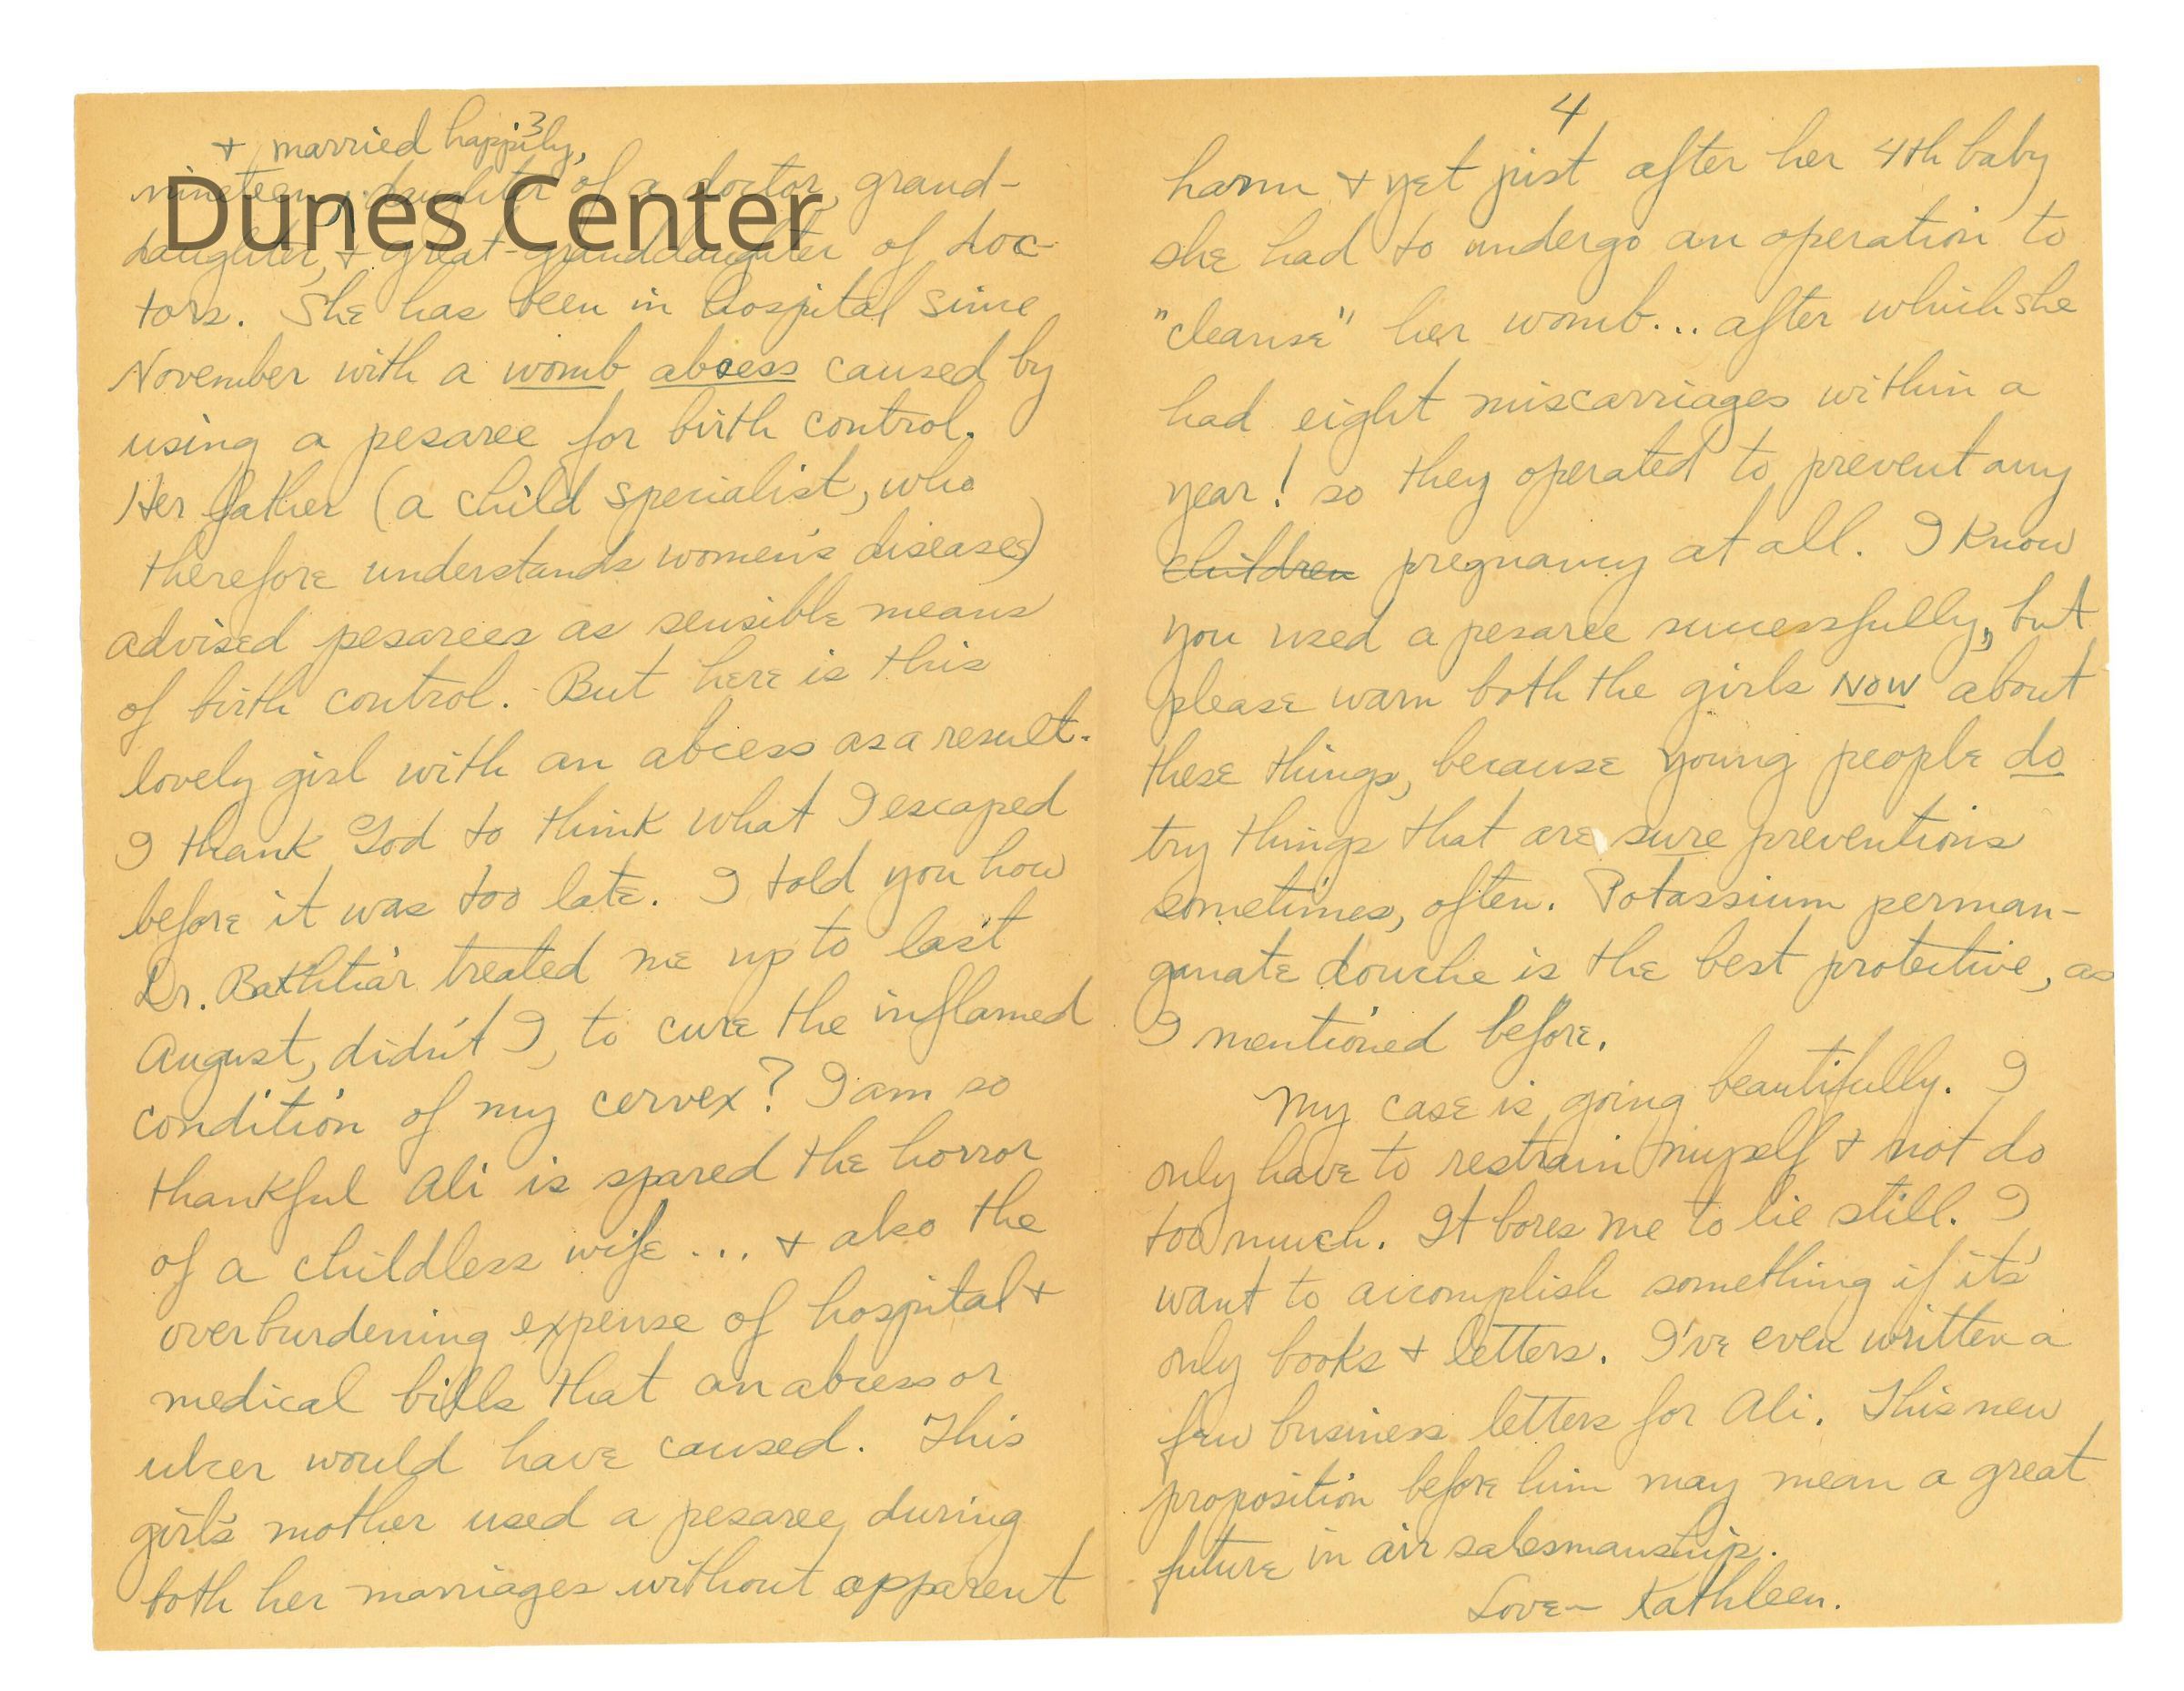 3
+ married happily,
nineteen, daughter of a doctor, grand-
Dunes Center
daughter, + great-granddaughter of doc-
tors. She has been in hospital since
November with a womb abcess caused by
using a pesaree for birth control.
Her father (a child specialist, who
therefore understands women's diseases)
advised pesarees as sensible means
of birth control. But here is this
lovely girl with an abcess as a result.
I thank God to think what I escaped
before it was too late. I told you how
Dr. Bakhtiar treated me up to last
August, didn't I, to cure the inflamed
condition of my cervex? I am so
thankful Ali is spared the horror
of a childless wife ... + also the
overburdening expense of hospital +
medical bills that an abcess or
ulcer would have caused. This
girl's mother used a pesaree during
both her marriages without apparent
4
harm + yet just after her 4th baby
she had to undergo an operation to
"cleanse" her womb... after which she
had eight miscarriages within a
year! so they operated to prevent any
children pregnancy at all. I know
you used a pesaree successfully, but
please warn both the girls NOW about
these things, because young people do
try things that are sure preventions
sometimes, often. Potassium perman-
ganate douche is the best protective, as
I mentioned before.
My case is going beautifully. I
only have to restrain myself + not do
too much. It bores me to lie still. I
want to accomplish something if it's
only books + letters. I've even written a
few business letters for Ali. This new
proposition before him may mean a great
future in air salesmanship.
Love— Kathleen.